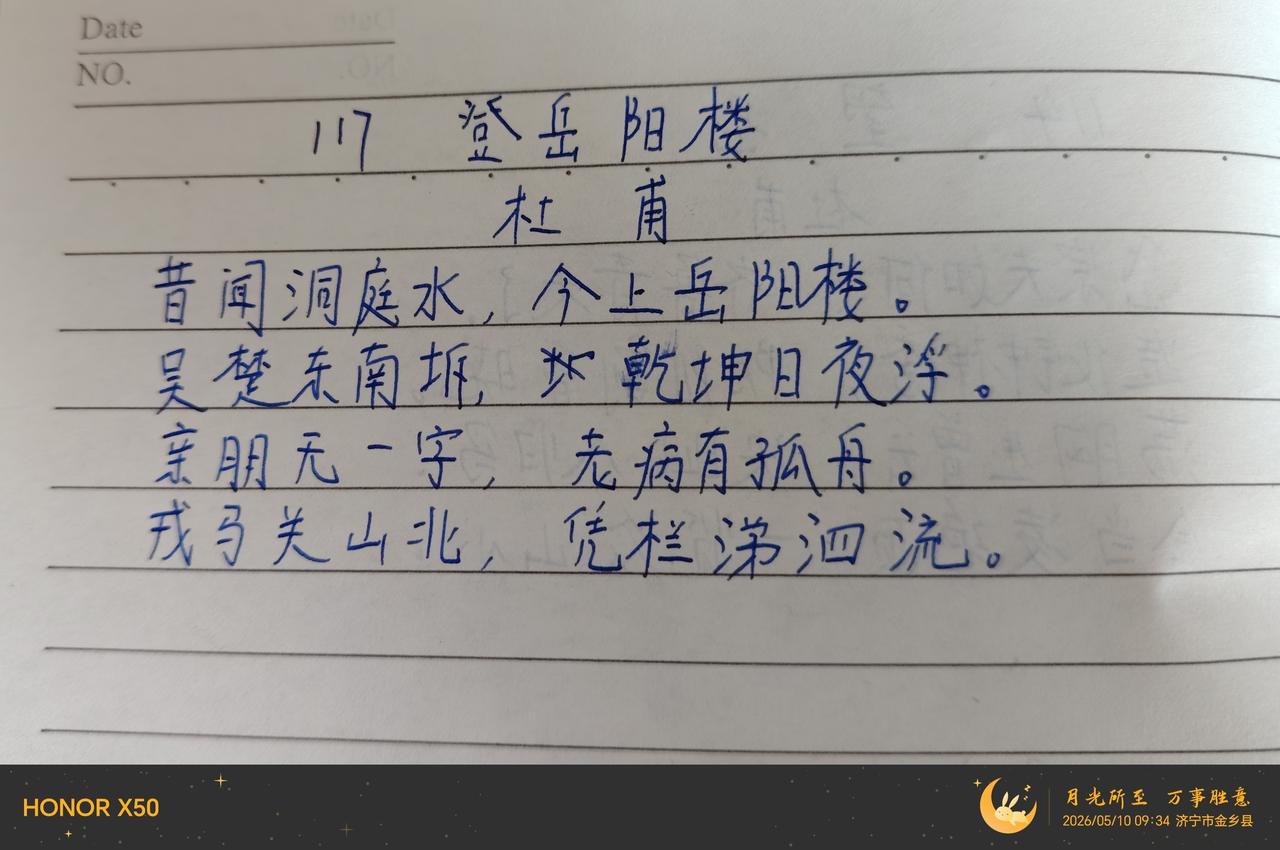 Date
NO.
117 登岳阳楼
杜甫
昔闻洞庭水，今上岳阳楼。
吴楚东南坼，乾坤日夜浮。
亲朋无一字，老病有孤舟。
戎马关山北，凭栏涕泗流。
HONOR X50
月光所至 万事胜意
2026/05/10 09:34 济宁市金乡县